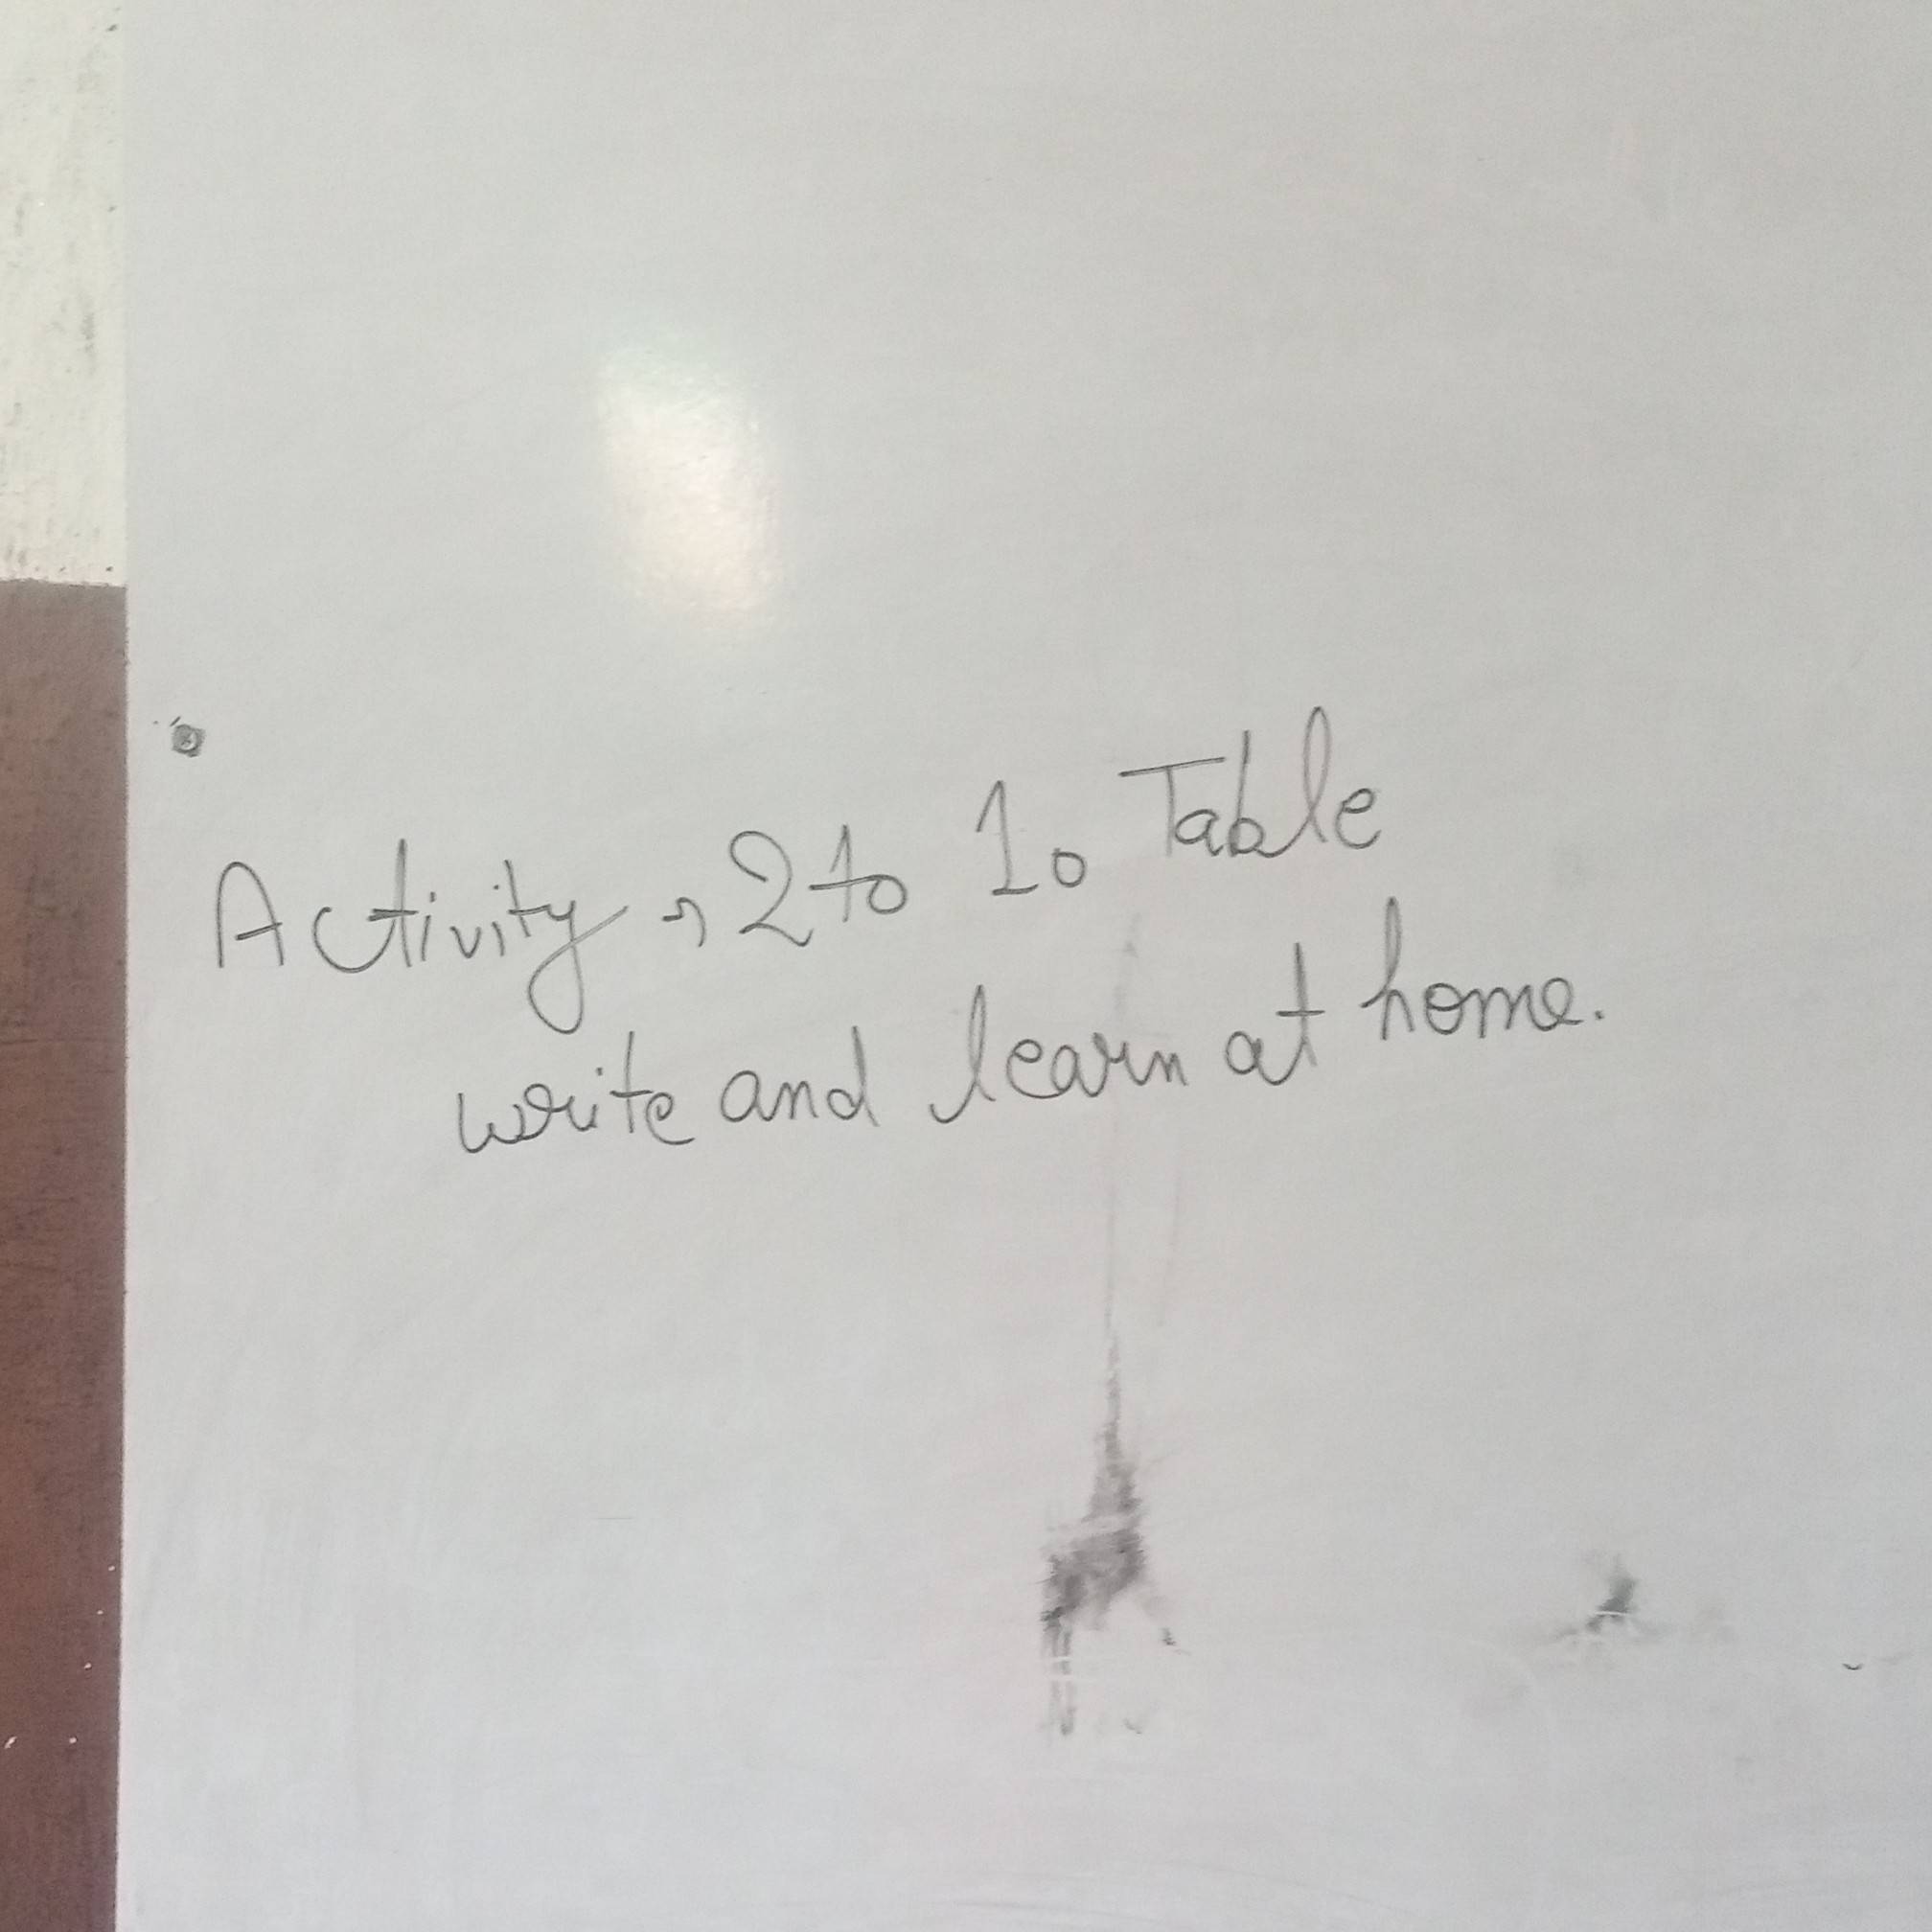 Activity → 2 to 10 Table
write and learn at home.